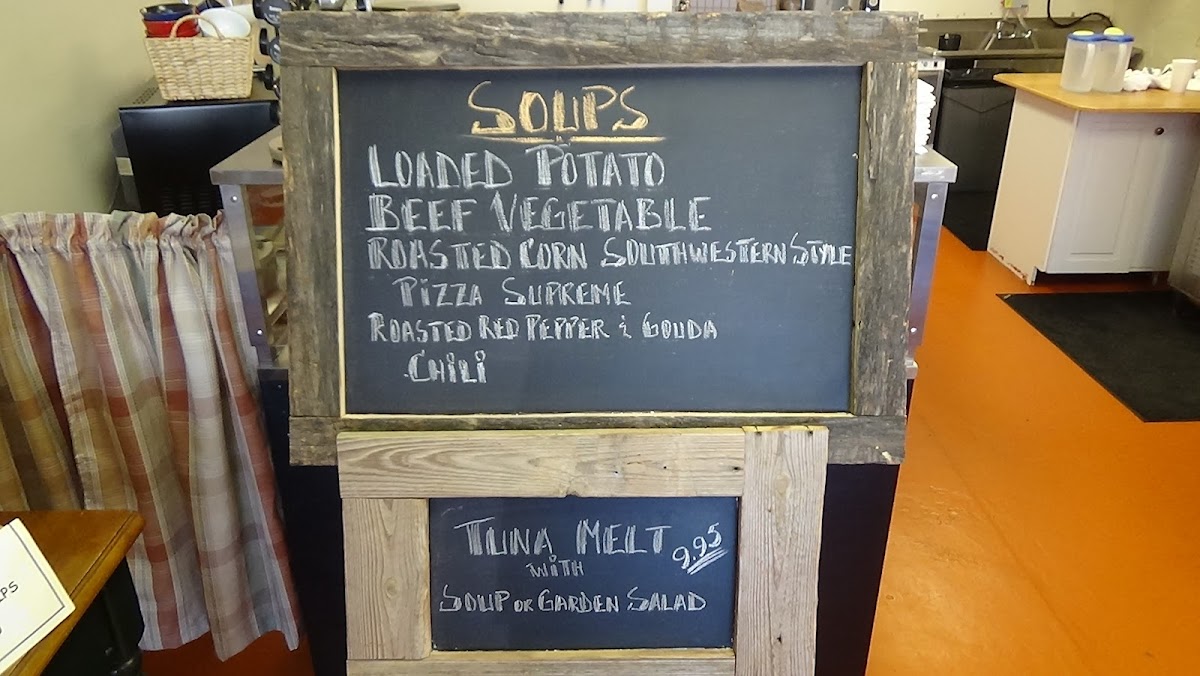 SOUPS
LOADED POTATO
BEEF VEGETABLE
ROASTED CORN SOUTHWESTERN STYLE
PIZZA SUPREME
ROASTED RED PEPPER & GOUDA
CHILI
TUNA MELT 9.95
WITH
SOUP OR GARDEN SALAD